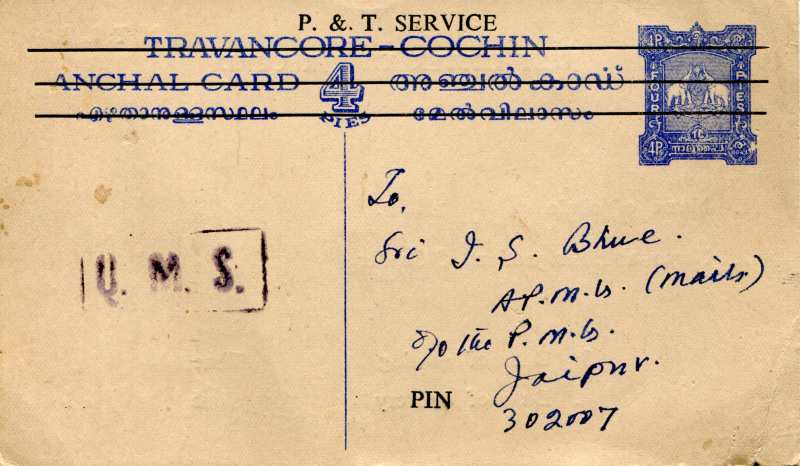 P. & T. SERVICE
TRAVANCORE-COCHIN
ANCHAL CARD 4 PIES അഞ്ചൽ കാഡ്
എഴുതാനുള്ളസ്ഥലം മേൽവിലാസം
4Ps
FOUR PIES
4Ps നാലുപൈ
Q. M. S.
To,
Sri J. S. Bhue.
A.P.M.G. (Mails)
O/o the P.M.G.
Jaipur.
PIN 302007